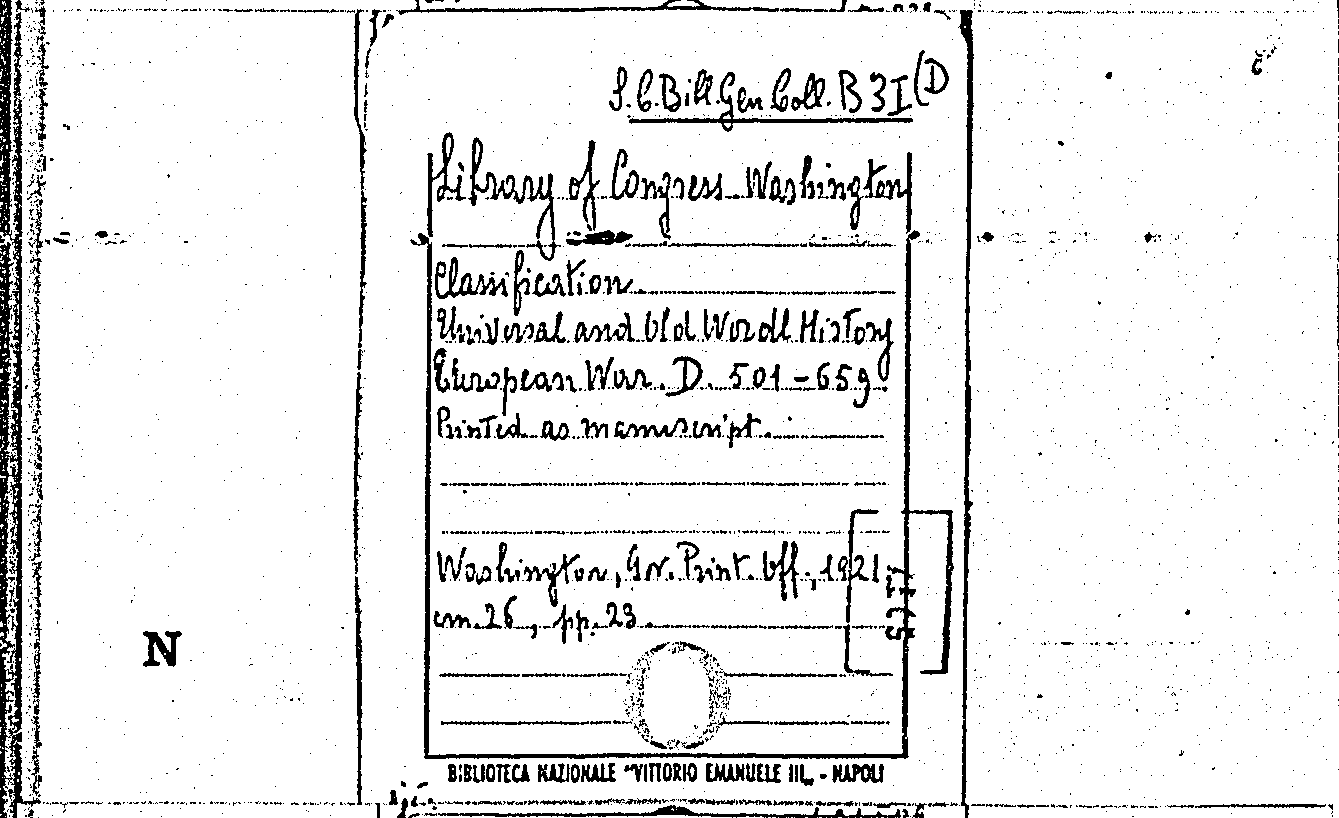 S.C.Bill.Gen Coll. B 3I(D
Library of Congress Washington
Classification.
Universal and Old Wordl History
European War. D. 501-659.
Printed as manuscript.
Washington, Gv. Print. Off., 1921
cm. 26, pp. 23.
N
BIBLIOTECA NAZIONALE "VITTORIO EMANUELE III„ - NAPOLI